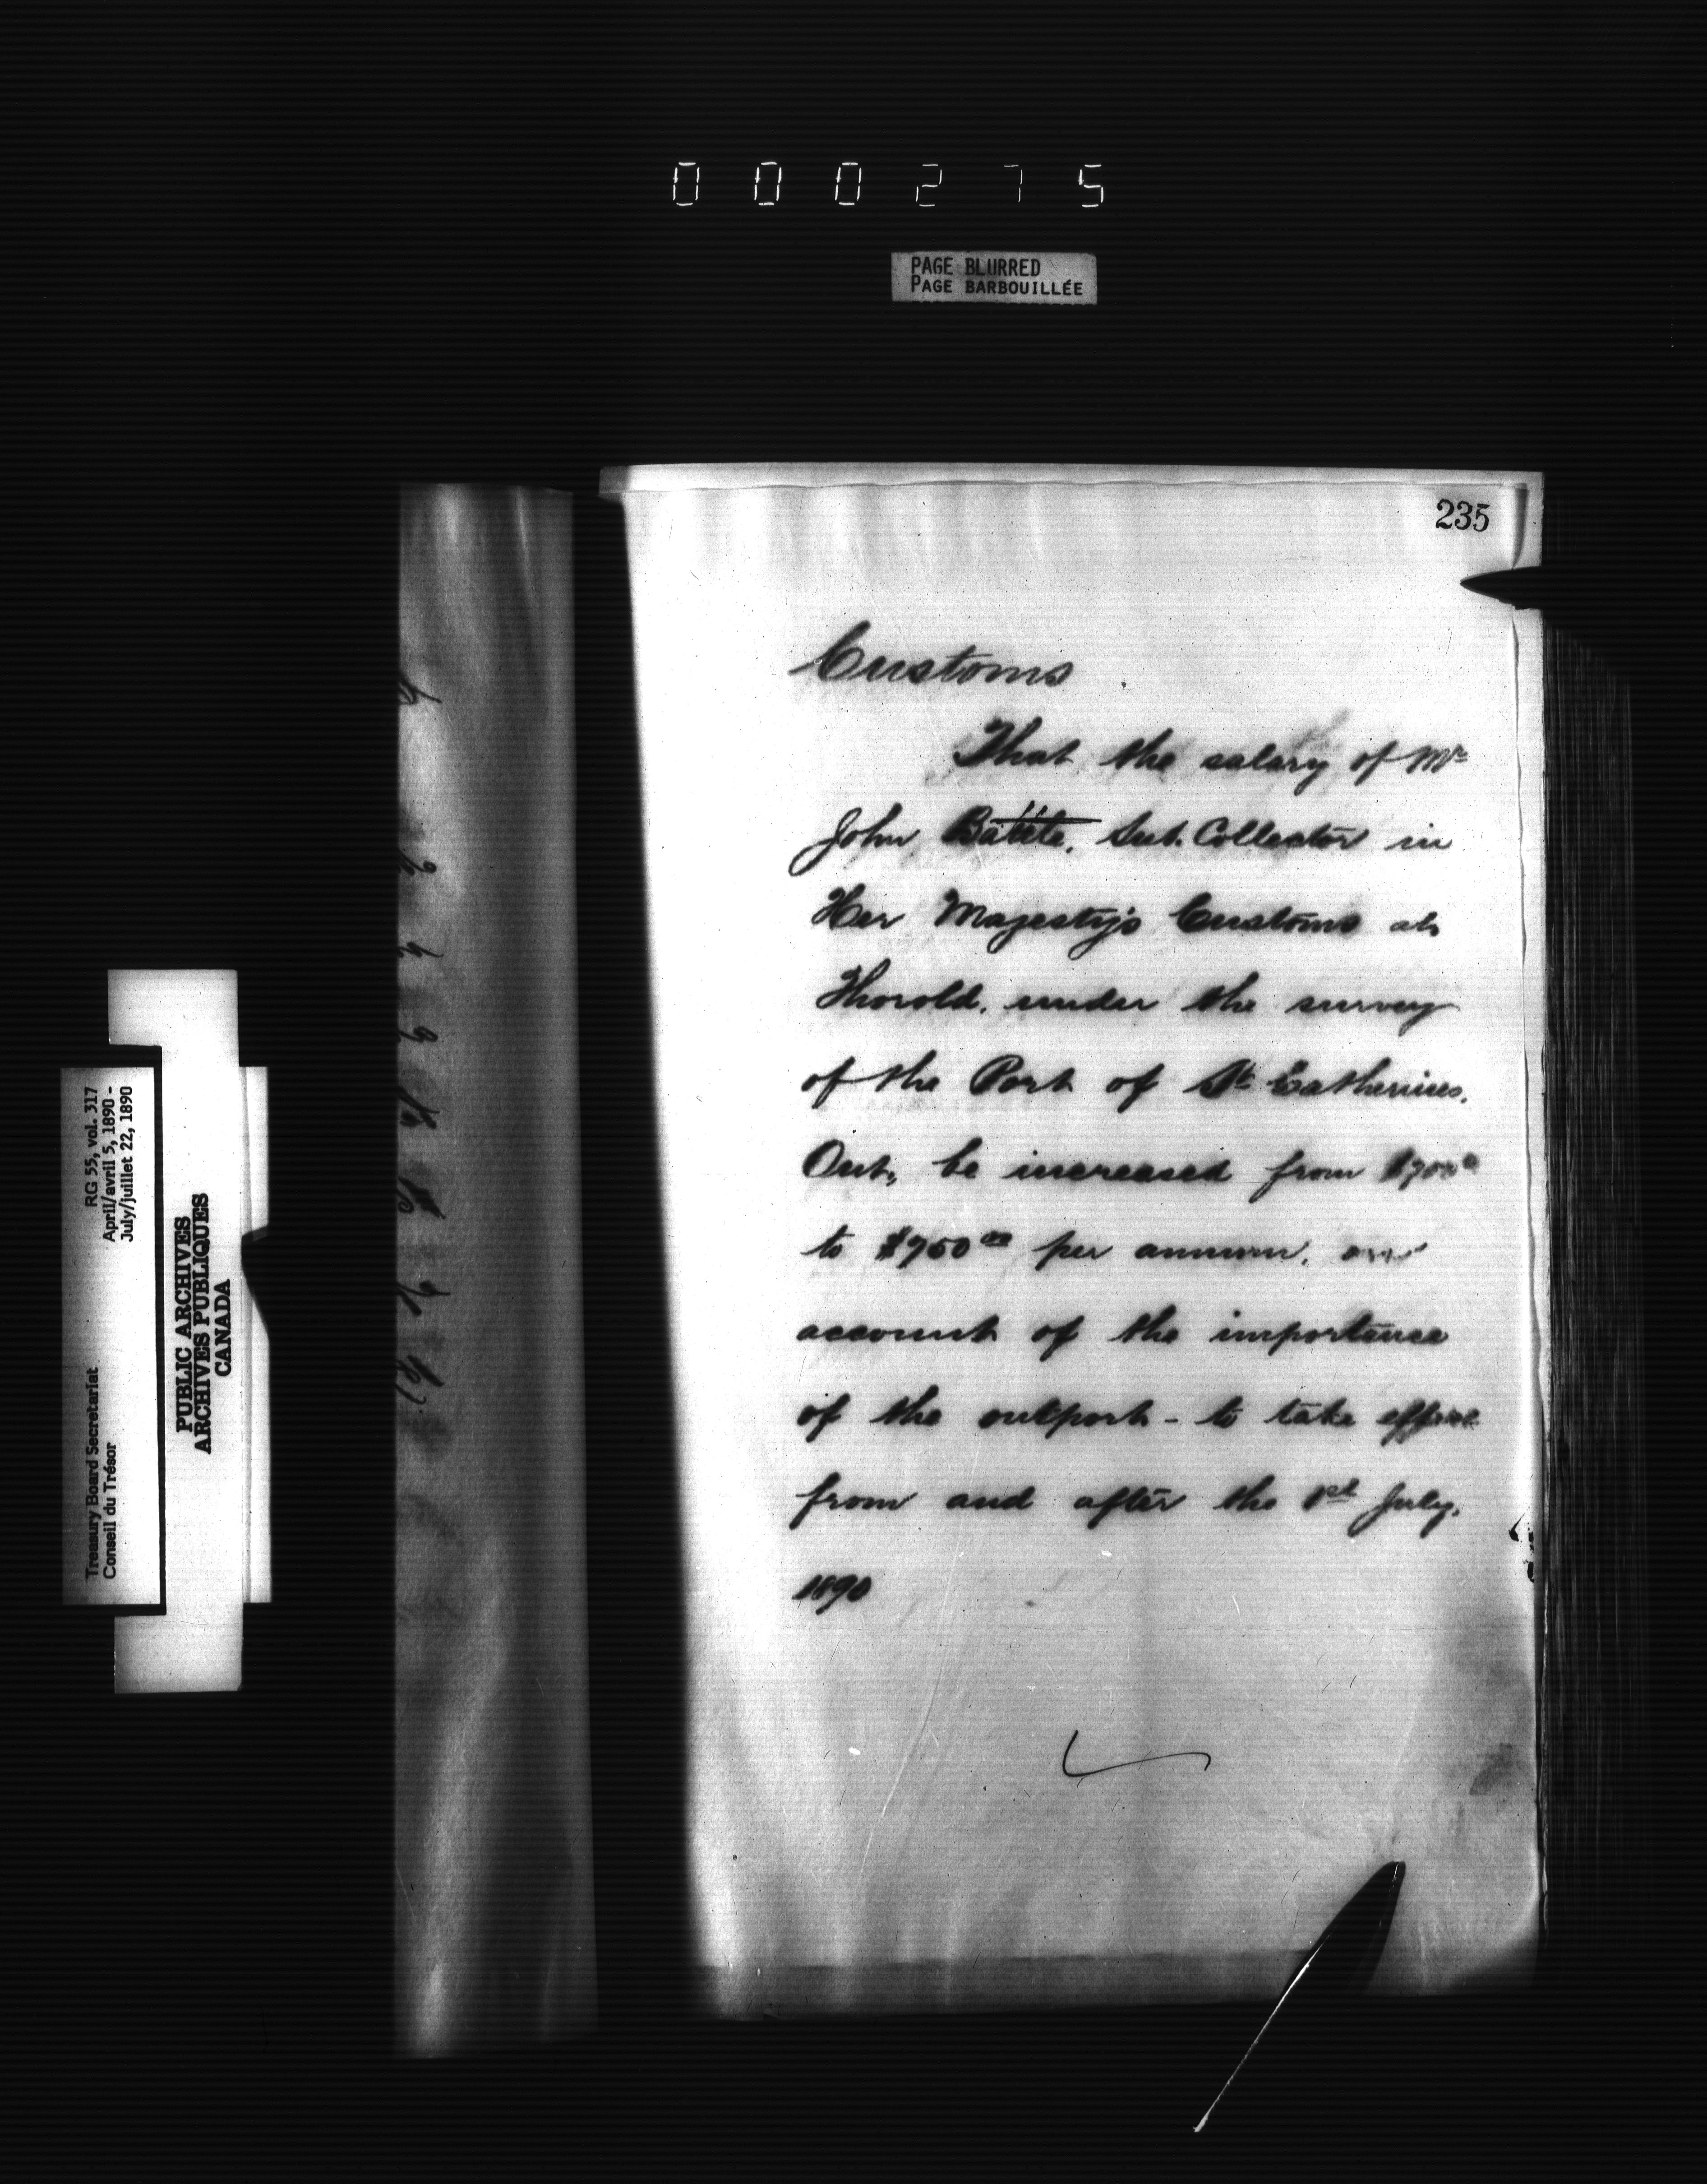 000275
PAGE BLURRED
PAGE BARBOUILLÉE
235
Customs
That the salary of Mr
John Battle, Sub. Collector in
Her Majesty's Customs at
Thorold, under the survey
of the Port of St Catherines,
Ont, be increased from $700
to $750 00 per annum, on
account of the importance
of the outport - to take effect
from and after the 1st July,
1890
RG 55, vol. 317
April/avril 5, 1890 -
July/juillet 22, 1890
Treasury Board Secretariat
Conseil du Trésor
PUBLIC ARCHIVES
ARCHIVES PUBLIQUES
CANADA